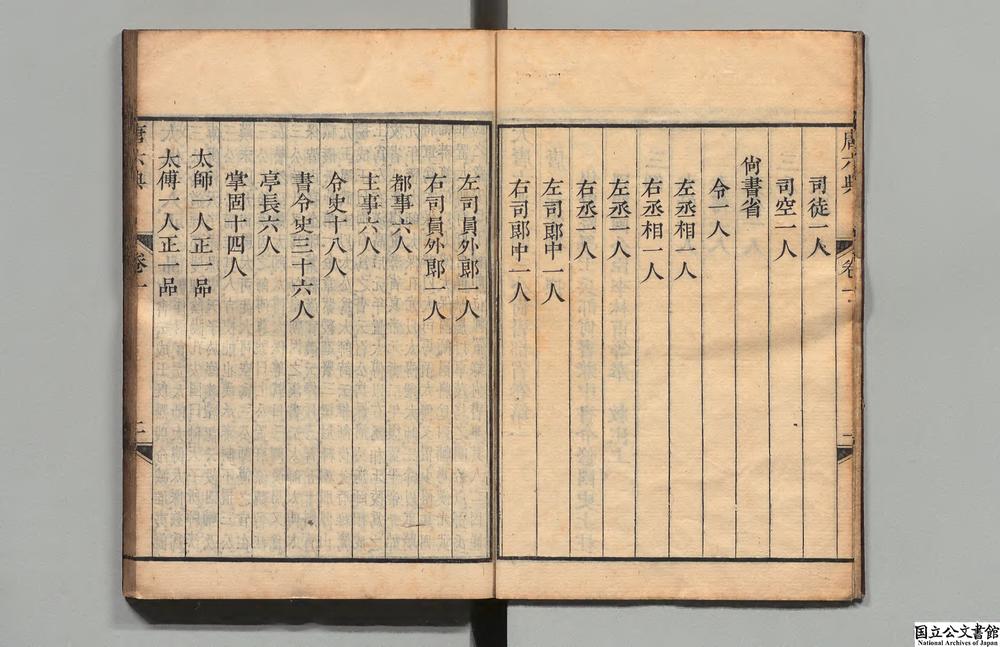 唐六典 卷一
司徒一人
司空一人
尚書省
令一人
左丞相一人
右丞相一人
左丞一人
右丞一人
左司郎中一人
右司郎中一人
左司員外郎一人
右司員外郎一人
都事六人
主事六人
令史十八人
書令史三十六人
亭長六人
掌固十四人
太師一人正一品
太傅一人正一品
唐六典 卷一 二
国立公文書館
National Archives of Japan